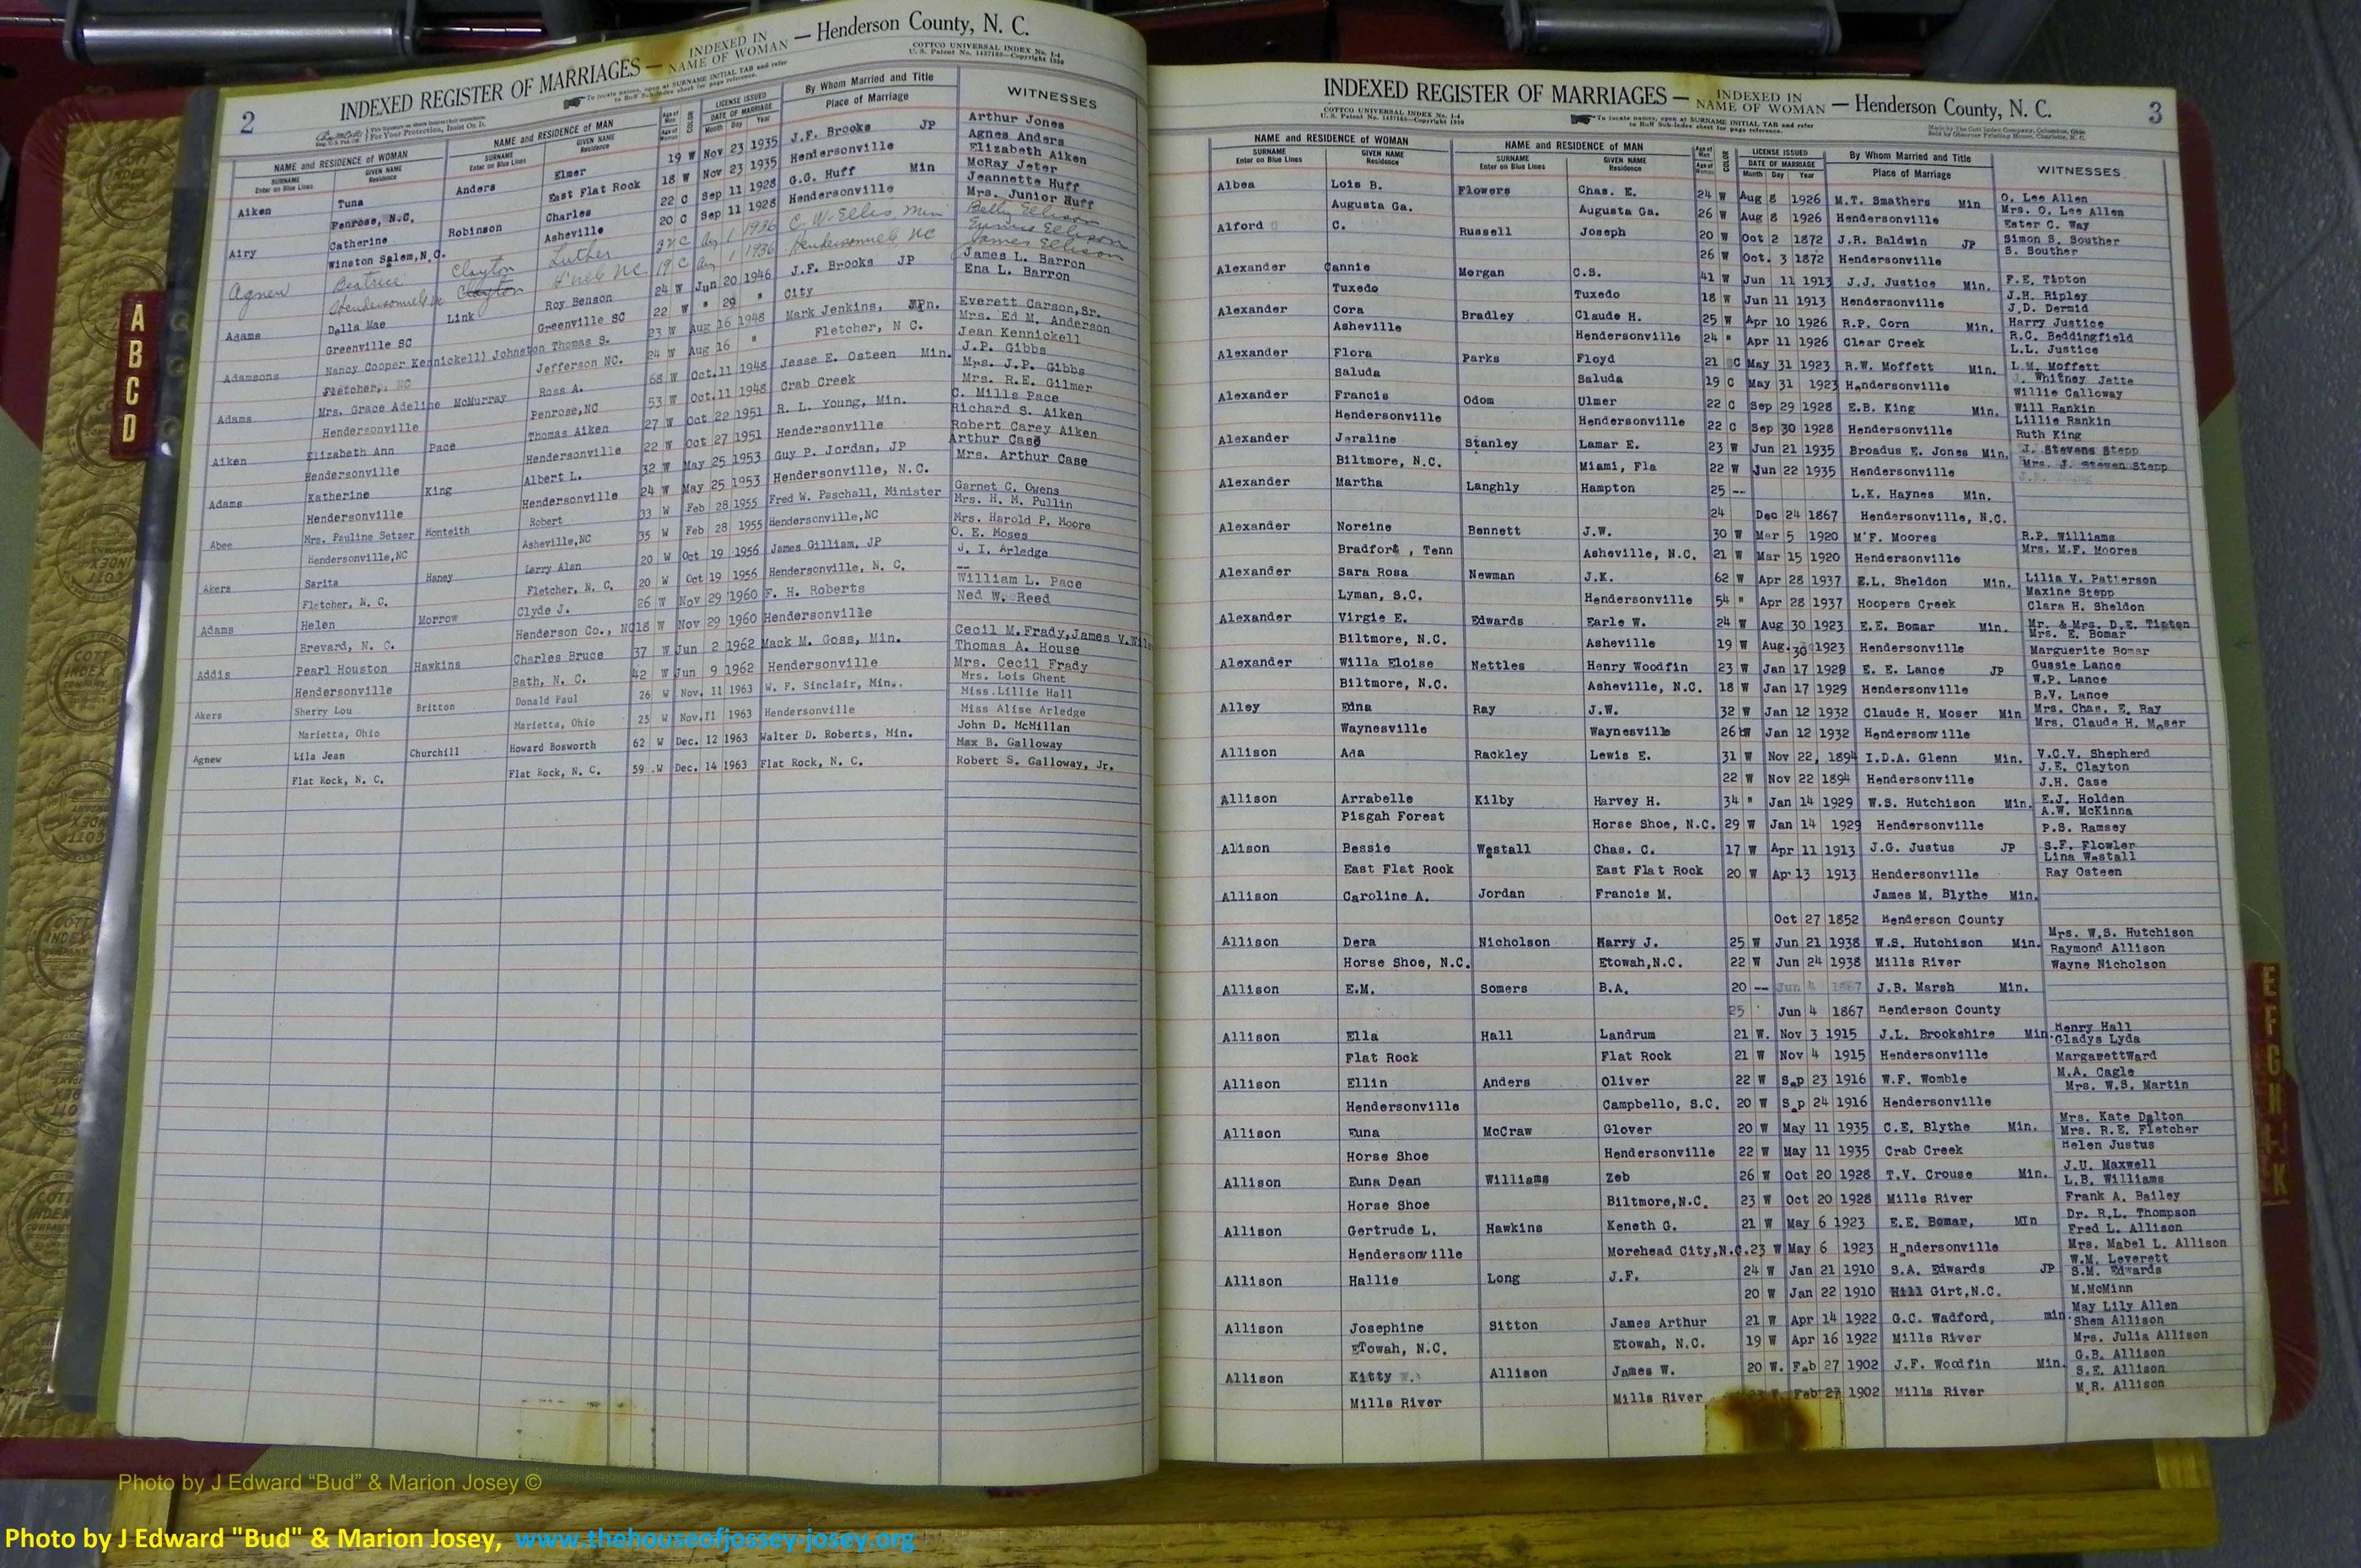 2
INDEXED REGISTER OF MARRIAGES — INDEXED IN NAME OF WOMAN — Henderson County, N. C.
COTTCO UNIVERSAL INDEX No. 1-4
U. S. Patent No. 1437185—Copyright 1930
To locate names, open at SURNAME INITIAL TAB and refer to Buff Sub-Index sheet for page reference.
For Your Protection, Insist On It.
NAME and RESIDENCE OF WOMAN NAME and RESIDENCE OF MAN COLOR LICENSE ISSUED By Whom Married and Title WITNESSES
SURNAME GIVEN NAME SURNAME GIVEN NAME DATE OF MARRIAGE Place of Marriage
Enter on Blue Lines Residence Enter on Blue Lines Residence Month Day Year
Aiken Tuna Anders Elmer 19 W Nov 23 1935 J.F. Brooks JP Arthur Jones
Agnes Anders
Penrose, N.C, East Flat Rock 18 W Nov 23 1935 Hendersonville Elizabeth Aiken
Airy Catherine Robinson Charles 22 C Sep 11 1928 G.G. Huff Min McRay Jeter
Jeannette Huff
Winston Salem,N.C. Asheville 20 C Sep 11 1928 Hendersonville Mrs. Junior Huff
Agnew Beatrice Clayton Luther C Aug 1 1936 C. W. Ellis, Min Betty Ellison
Eunice Ellison
Hendersonville Clayton H'ville NC 19 C Aug 1 1936 Hendersonville NC James Ellison
Adams Della Mae Link Roy Benson 24 W Jun 20 1946 J.F. Brooks JP James L. Barron
Ena L. Barron
Greenville SC Greenville SC 22 W " 29 " City
Adamsons Nancy Cooper Kennickell) Johnston Thomas S. 23 W Aug 16 1948 Mark Jenkins, Mn. Everett Carson,Sr.
Mrs. Ed M. Anderson
Fletcher, NC Jefferson NC. 24 W Aug 16 " Fletcher, N C. Jean Kennickell
Adams Mrs. Grace Adeline McMurray Ross A. 68 W Oct.11 1948 Jesse E. Osteen Min. J.P. Gibbs
Mrs. J.P. Gibbs
Hendersonville Penrose,NC 53 W Oct.11 1948 Crab Creek Mrs. R.E. Gilmer
Aiken Elizabeth Ann Pace Thomas Aiken 27 W Oct 22 1951 R. L. Young, Min. C. Mills Pace
Richard S. Aiken
Hendersonville Hendersonville 22 W Oct 27 1951 Hendersonville Robert Carey Aiken
Adams Katherine King Albert L. 32 W May 25 1953 Guy P. Jordan, JP Arthur Case
Mrs. Arthur Case
Hendersonville Hendersonville 24 W May 25 1953 Hendersonville, N.C.
Abee Mrs. Pauline Setzer Monteith Robert 33 W Feb 28 1955 Fred W. Paschall, Minister Garnet C. Owens
Mrs. H. M. Pullin
Hendersonville,NC Asheville,NC 35 W Feb 28 1955 Hendersonville,NC Mrs. Harold P. Moore
Akers Sarita Haney Larry Alan 20 W Oct 19 1956 James Gilliam, JP O. E. Moses
J. I. Arledge
Fletcher, N. C. Fletcher, N. C. 20 W Oct 19 1956 Hendersonville, N. C. --
Adams Helen Morrow Clyde J. 26 W Nov 29 1960 F. H. Roberts William L. Pace
Ned W. Reed
Brevard, N. C. Henderson Co., NC 18 W Nov 29 1960 Hendersonville
Addis Pearl Houston Hawkins Charles Bruce 37 W Jun 2 1962 Mack M. Goss, Min. Cecil M.Frady,James V.Wils
Thomas A. House
Hendersonville Bath, N. C. 42 W Jun 9 1962 Hendersonville Mrs. Cecil Frady
Akers Sherry Lou Britton Donald Paul 26 W Nov. 11 1963 W. F. Sinclair, Min. Mrs. Lois Ghent
Miss.Lillie Hall
Marietta, Ohio Marietta, Ohio 25 W Nov.11 1963 Hendersonville Miss Alise Arledge
Agnew Lila Jean Churchill Howard Bosworth 62 W Dec. 12 1963 Walter D. Roberts, Min. John D. McMillan
Max B. Galloway
Flat Rock, N. C. Flat Rock, N. C. 59 W Dec. 14 1963 Flat Rock, N. C. Robert S. Galloway, Jr.
3
INDEXED REGISTER OF MARRIAGES — INDEXED IN NAME OF WOMAN — Henderson County, N. C.
COTTCO UNIVERSAL INDEX No. 1-4
U. S. Patent No. 1437185—Copyright 1930
To locate names, open at SURNAME INITIAL TAB and refer to Buff Sub-Index sheet for page reference.
Made by The Cott Index Company, Columbus, Ohio
Sold by Observer Printing House, Charlotte, N. C.
NAME and RESIDENCE OF WOMAN NAME and RESIDENCE OF MAN COLOR LICENSE ISSUED By Whom Married and Title WITNESSES
SURNAME GIVEN NAME SURNAME GIVEN NAME DATE OF MARRIAGE Place of Marriage
Enter on Blue Lines Residence Enter on Blue Lines Residence Month Day Year
Albea Lois B. Flowers Chas. E. 24 W Aug 8 1926 M.T. Smathers Min O. Lee Allen
Mrs. O. Lee Allen
Augusta Ga. Augusta Ga. 26 W Aug 8 1926 Hendersonville Ester C. Way
Alford C. Russell Joseph 20 W Oct 2 1872 J.R. Baldwin JP Simon S. Souther
S. Souther
26 W Oct. 3 1872 Hendersonville
Alexander Cannie Morgan C.S. 41 W Jun 11 1913 J.J. Justice Min. F.E. Tipton
J.H. Ripley
Tuxedo Tuxedo 18 W Jun 11 1913 Hendersonville J.D. Dermid
Alexander Cora Bradley Claude H. 25 W Apr 10 1926 R.P. Corn Min. Harry Justice
R.C. Beddingfield
Asheville Hendersonville 24 " Apr 11 1926 Clear Creek L.L. Justice
Alexander Flora Parks Floyd 21 C May 31 1923 R.W. Moffett Min. L.M. Moffett
J. Whitney Jette
Saluda Saluda 19 C May 31 1923 Hendersonville Willie Calloway
Alexander Francis Odom Ulmer 22 C Sep 29 1928 E.B. King Min. Will Rankin
Lillie Rankin
Hendersonville Hendersonville 22 C Sep 30 1928 Hendersonville Ruth King
Alexander Jeraline Stanley Lamar E. 23 W Jun 21 1935 Broadus E. Jones Min. J. Stevens Stepp
Mrs. J. Steven Stepp
Biltmore, N.C. Miami, Fla 22 W Jun 22 1935 Hendersonville
Alexander Martha Langhly Hampton 25 -- L.K. Haynes Min.
24 Dec 24 1867 Hendersonville, N.C.
Alexander Noreine Bennett J.W. 30 W Mar 5 1920 M'F. Moores R.P. Williams
Mrs. M.F. Moores
Bradford , Tenn Asheville, N.C. 21 W Mar 15 1920 Hendersonville
Alexander Sara Rosa Newman J.K. 62 W Apr 28 1937 E.L. Sheldon Min. Lilia V. Patterson
Maxine Stepp
Lyman, S.C. Hendersonville 54 " Apr 28 1937 Hoopers Creek Clara H. Sheldon
Alexander Virgie E. Edwards Earle W. 24 W Aug 30 1923 E.E. Bomar Min. Mr. & Mrs. D.E. Tinten
Mrs. E. Bomar
Biltmore, N.C. Asheville 19 W Aug.30 1923 Hendersonville Marguerite Bomar
Alexander Willa Eloise Nettles Henry Woodfin 23 W Jan 17 1929 E. E. Lance JP Gussie Lance
W.P. Lance
Biltmore, N.C. Asheville, N.C. 18 W Jan 17 1929 Hendersonville B.V. Lance
Alley Edna Ray J.W. 32 W Jan 12 1932 Claude H. Moser Min Mrs. Chas. E. Ray
Mrs. Claude H. Moser
Waynesville Waynesville 26 W Jan 12 1932 Hendersonville
Allison Ada Rackley Lewis E. 31 W Nov 22, 1894 I.D.A. Glenn Min. V.C.V. Shepherd
J.E. Clayton
22 W Nov 22 1894 Hendersonville J.H. Case
Allison Arrabelle Kilby Harvey H. 34 " Jan 14 1929 W.S. Hutchison Min. E.J. Holden
A.W. McKinna
Pisgah Forest Horse Shoe, N.C. 29 W Jan 14 1929 Hendersonville P.S. Ramsey
Alison Bessie Westall Chas. C. 17 W Apr 11 1913 J.G. Justus JP S.F. Flowler
Lina Westall
East Flat Rock East Flat Rock 20 W Apr 13 1913 Hendersonville Ray Osteen
Allison Caroline A. Jordan Francis M. James M. Blythe Min.
Oct 27 1852 Henderson County
Allison Dera Nicholson Harry J. 25 W Jun 21 1938 W.S. Hutchison Min. Mrs. W.S. Hutchison
Raymond Allison
Horse Shoe, N.C. Etowah,N.C. 22 W Jun 24 1938 Mills River Wayne Nicholson
Allison E.M. Somers B.A. 20 -- Jun 4 1867 J.B. Marsh Min.
25 Jun 4 1867 Henderson County
Allison Ella Hall Landrum 21 W. Nov 3 1915 J.L. Brookshire Min. Henry Hall
Gladys Lyda
Flat Rock Flat Rock 21 W Nov 4 1915 Hendersonville MargarettWard
Allison Ellin Anders Oliver 22 W Sep 23 1916 W.F. Womble M.A. Cagle
Mrs. W.S. Martin
Hendersonville Campbello, S.C. 20 W Sep 24 1916 Hendersonville
Allison Euna McCraw Glover 20 W May 11 1935 C.E. Blythe Min. Mrs. Kate Dalton
Mrs. R.E. Fletcher
Horse Shoe Hendersonville 22 W May 11 1935 Crab Creek Helen Justus
Allison Euna Dean Williams Zeb 26 W Oct 20 1928 T.V. Crouse Min. J.U. Maxwell
L.B. Williams
Horse Shoe Biltmore,N.C. 23 W Oct 20 1928 Mills River Frank A. Bailey
Allison Gertrude L. Hawkins Keneth G. 21 W May 6 1923 E.E. Bomar, MIn Dr. R.L. Thompson
Fred L. Allison
Hendersonville Morehead City,N.C. 23 W May 6 1923 Hendersonville Mrs. Mabel L. Allison
Allison Hallie Long J.F. 24 W Jan 21 1910 S.A. Edwards JP W.M. Leverett
S.M. Edwards
20 W Jan 22 1910 Hill Girt,N.C. M.McMinn
Allison Josephine Sitton James Arthur 21 W Apr 14 1922 G.C. Wadford, min. May Lily Allen
Shem Allison
ETowah, N.C. Etowah, N.C. 19 W Apr 16 1922 Mills River Mrs. Julia Allison
Allison Kitty W. Allison James W. 20 W. Feb 27 1902 J.F. Woodfin Min. G.B. Allison
S.E. Allison
Mills River Mills River Feb 27 1902 Mills River M.R. Allison
A
B
C
D
E
F
G
H
K
Photo by J Edward “Bud” & Marion Josey ©
Photo by J Edward "Bud" & Marion Josey, www.thehouseofjossey-josey.org